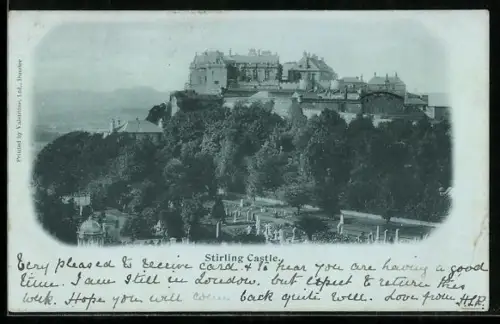 Printed by Valentine, Ltd., Dundee
Stirling Castle.
Very pleased to receive card & to hear you are having a good
time. I am still in London, but expect to return this
week. Hope you will come back quite well. Love from HLR.